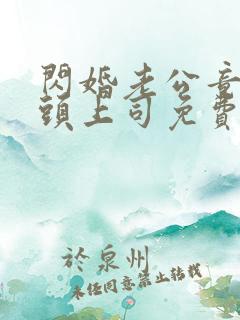 閃婚老公竟
頭上司免費
於泉州
未经同意禁止转载